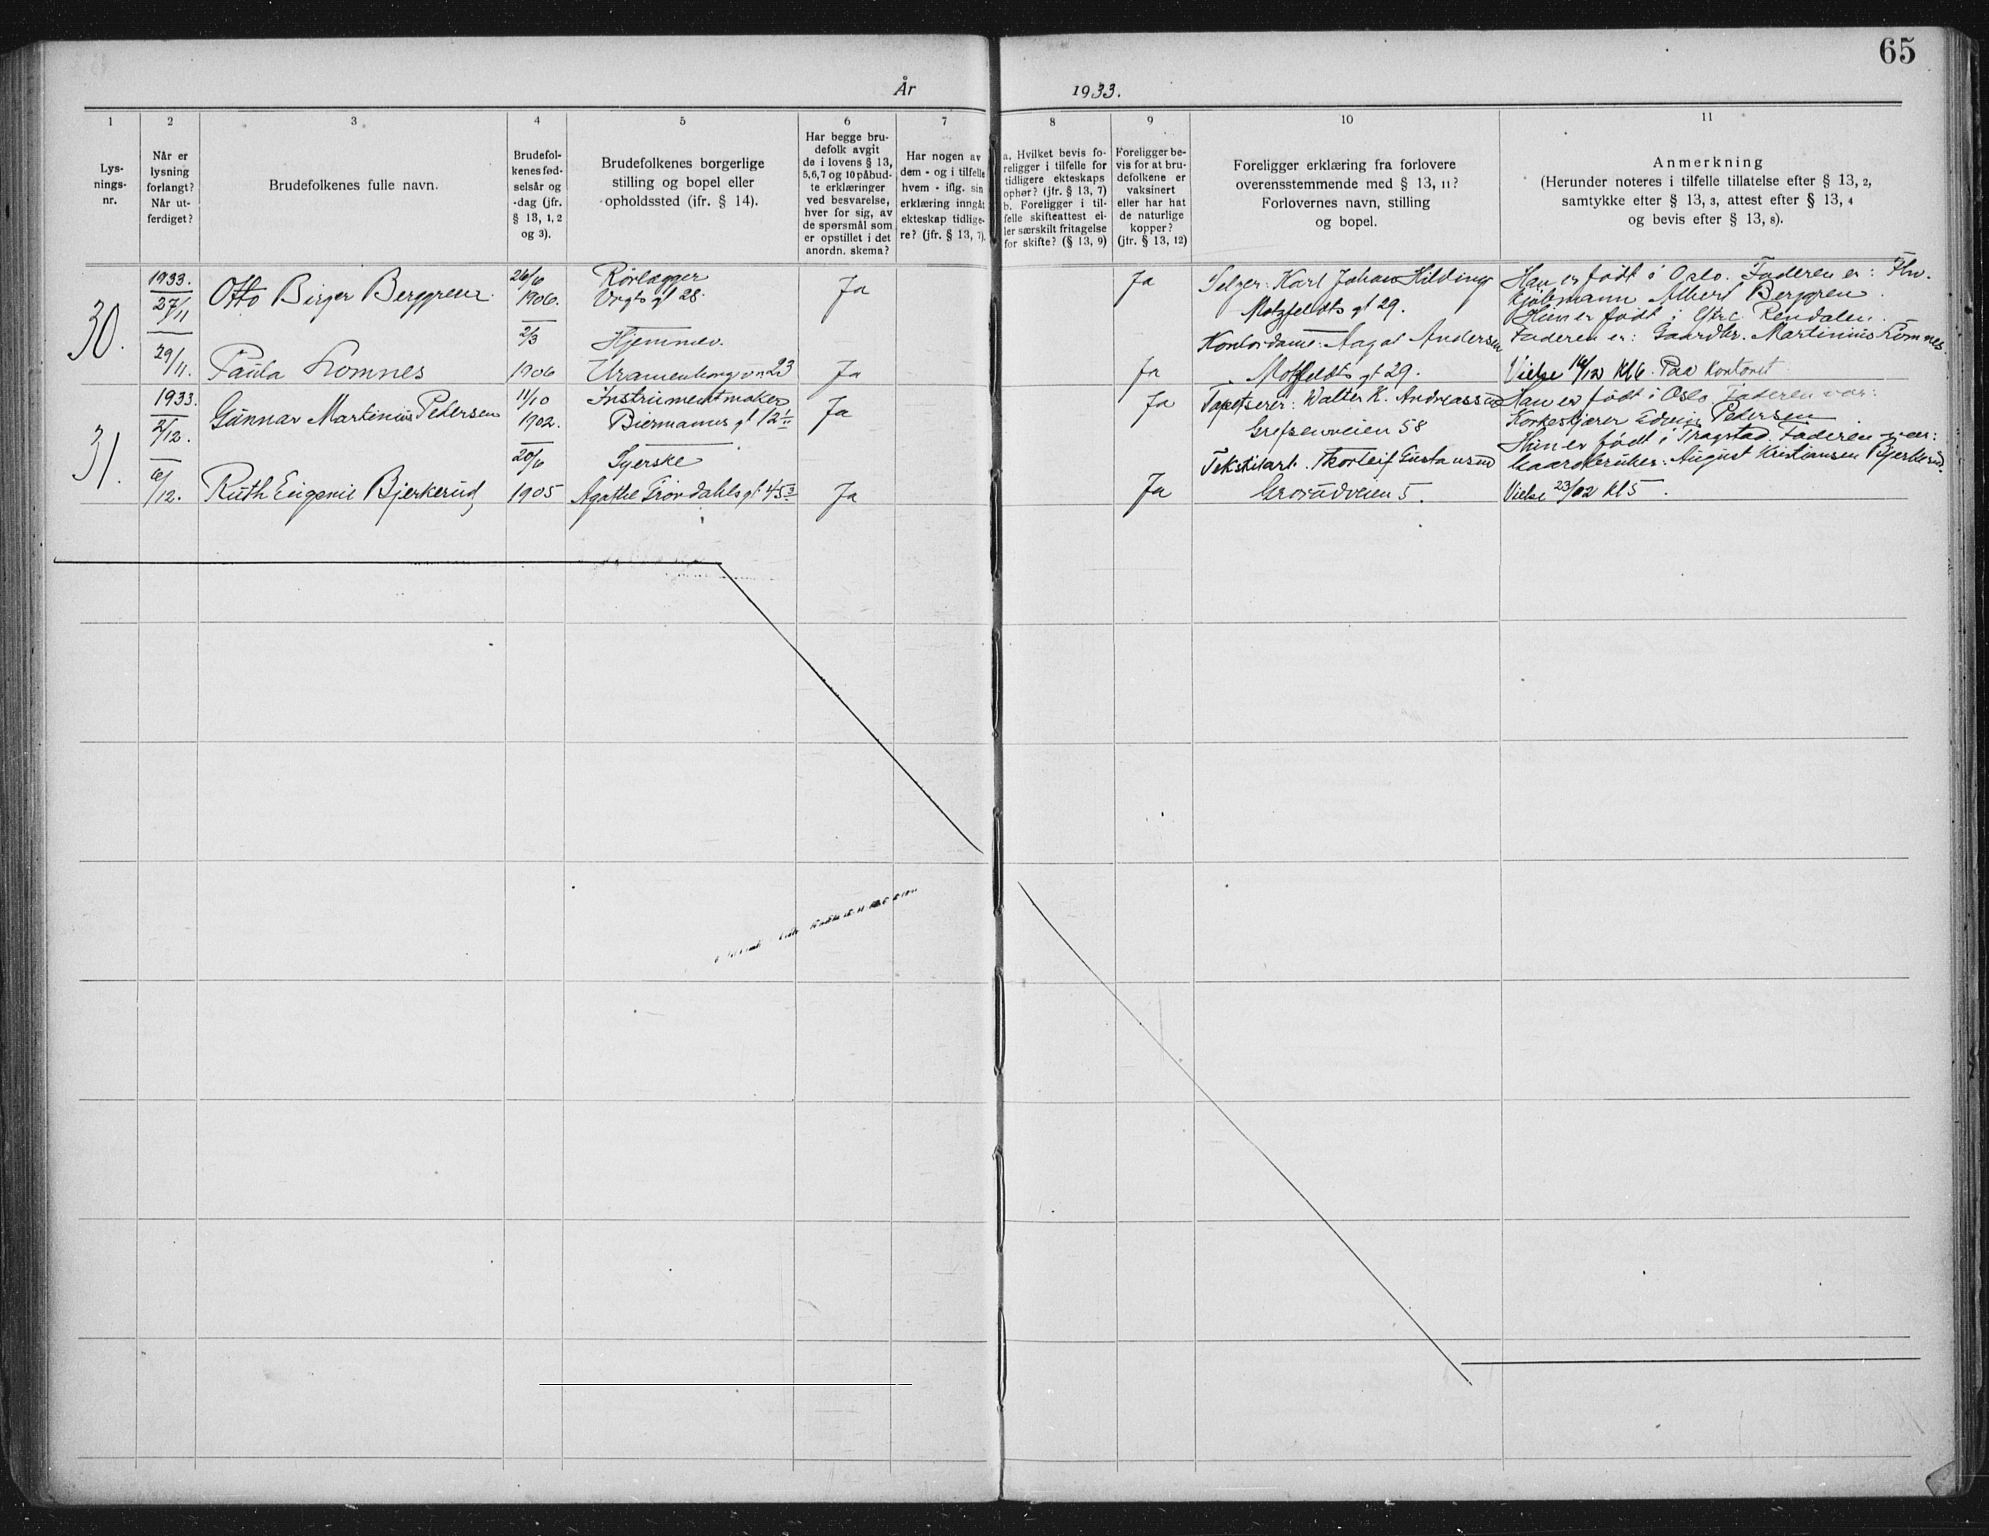 65
År 1933.
1 2 3 4 5 6 7 8 9 10 11
Lys-
nings-
nr.
Når er
lysning
forlangt?
Når ut-
ferdiget?
Brudefolkenes fulle navn.
Brudefol-
kenes fød-
selsår og
-dag (jfr.
§ 13, 1, 2
og 3).
Brudefolkenes borgerlige
stilling og bopel eller
opholdssted (ifr. § 14).
Har begge bru-
defolk avgit
de i lovens § 13,
5,6,7 og 10 påbud-
te erklæringer
ved besvarelse,
hver for sig, av
de spørsmål som
er opstillet i det
anordn. skema?
Har nogen av
dem - og i tilfelle
hvem - iflg. sin
erklæring inngåt
ekteskap tidlige-
re? (jfr. § 13, 7).
a. Hvilket bevis fo-
religger i tilfelle for
tidligere ekteskaps
ophør? (jfr. § 13, 7)
b. Foreligger i til-
felle skifteattest el-
ler særskilt fritagelse
for skifte? (§ 13, 9)
Foreligger be-
vis for at bru-
defolkene er
vaksinert
eller har hat
de naturlige
kopper?
(jfr. § 13, 12)
Foreligger erklæring fra forlovere
overensstemmende med § 13, 11?
Forlovernes navn, stilling
og bopel.
Anmerkning
(Herunder noteres i tilfelle tillatelse efter § 13, 2,
samtykke efter § 13, 3, attest efter § 13, 4
og bevis efter § 13, 8).
30.
1933.
27/11
29/11.
Otto Birger Berggren
26/6
1906.
Rørlægger
Vogts gt 28.
Ja
Ja
Karl Johan Hilding
Motzfeldts gt 29.
Han er født i Oslo. Faderen er: Fhv.
Kjøbmann Albert Berggren.
Paula Lomnes
2/3
1906
Hjemmev.
Uranienborgvn 23
Ja
Ja
Kontordame: Aagot Andersen
Motzfeldts gt 29.
Hun er født i Ytre Rendalen.
Faderen er: Gaardbr. Martinius Lomnes.
Vielse 16/12 Kl 6. Paa Kontoret
31.
1933.
2/12.
6/12.
Gunnar Martinius Petersen
11/10
1902.
Instrumentmaker
Biermanns gt 12
Ja
Ja
Tapetserer: Walter K. Andreassen
Grefsenveien 58
Han er født i Oslo. Faderen var:
Korkeskjærer Pedersen
Ruth Eugenie Bjerkerud
20/6
1905
Syerske
Agathe Grøndahls gt 45
Ja
Ja
Tekstilarb. Thorleif Gustavsen
Grorudveien 5.
Hun er født i Trøgstad. Faderen var:
Gaardbruker: August Kristiansen Bjerkerud.
Vielse 23/12 Kl 5.